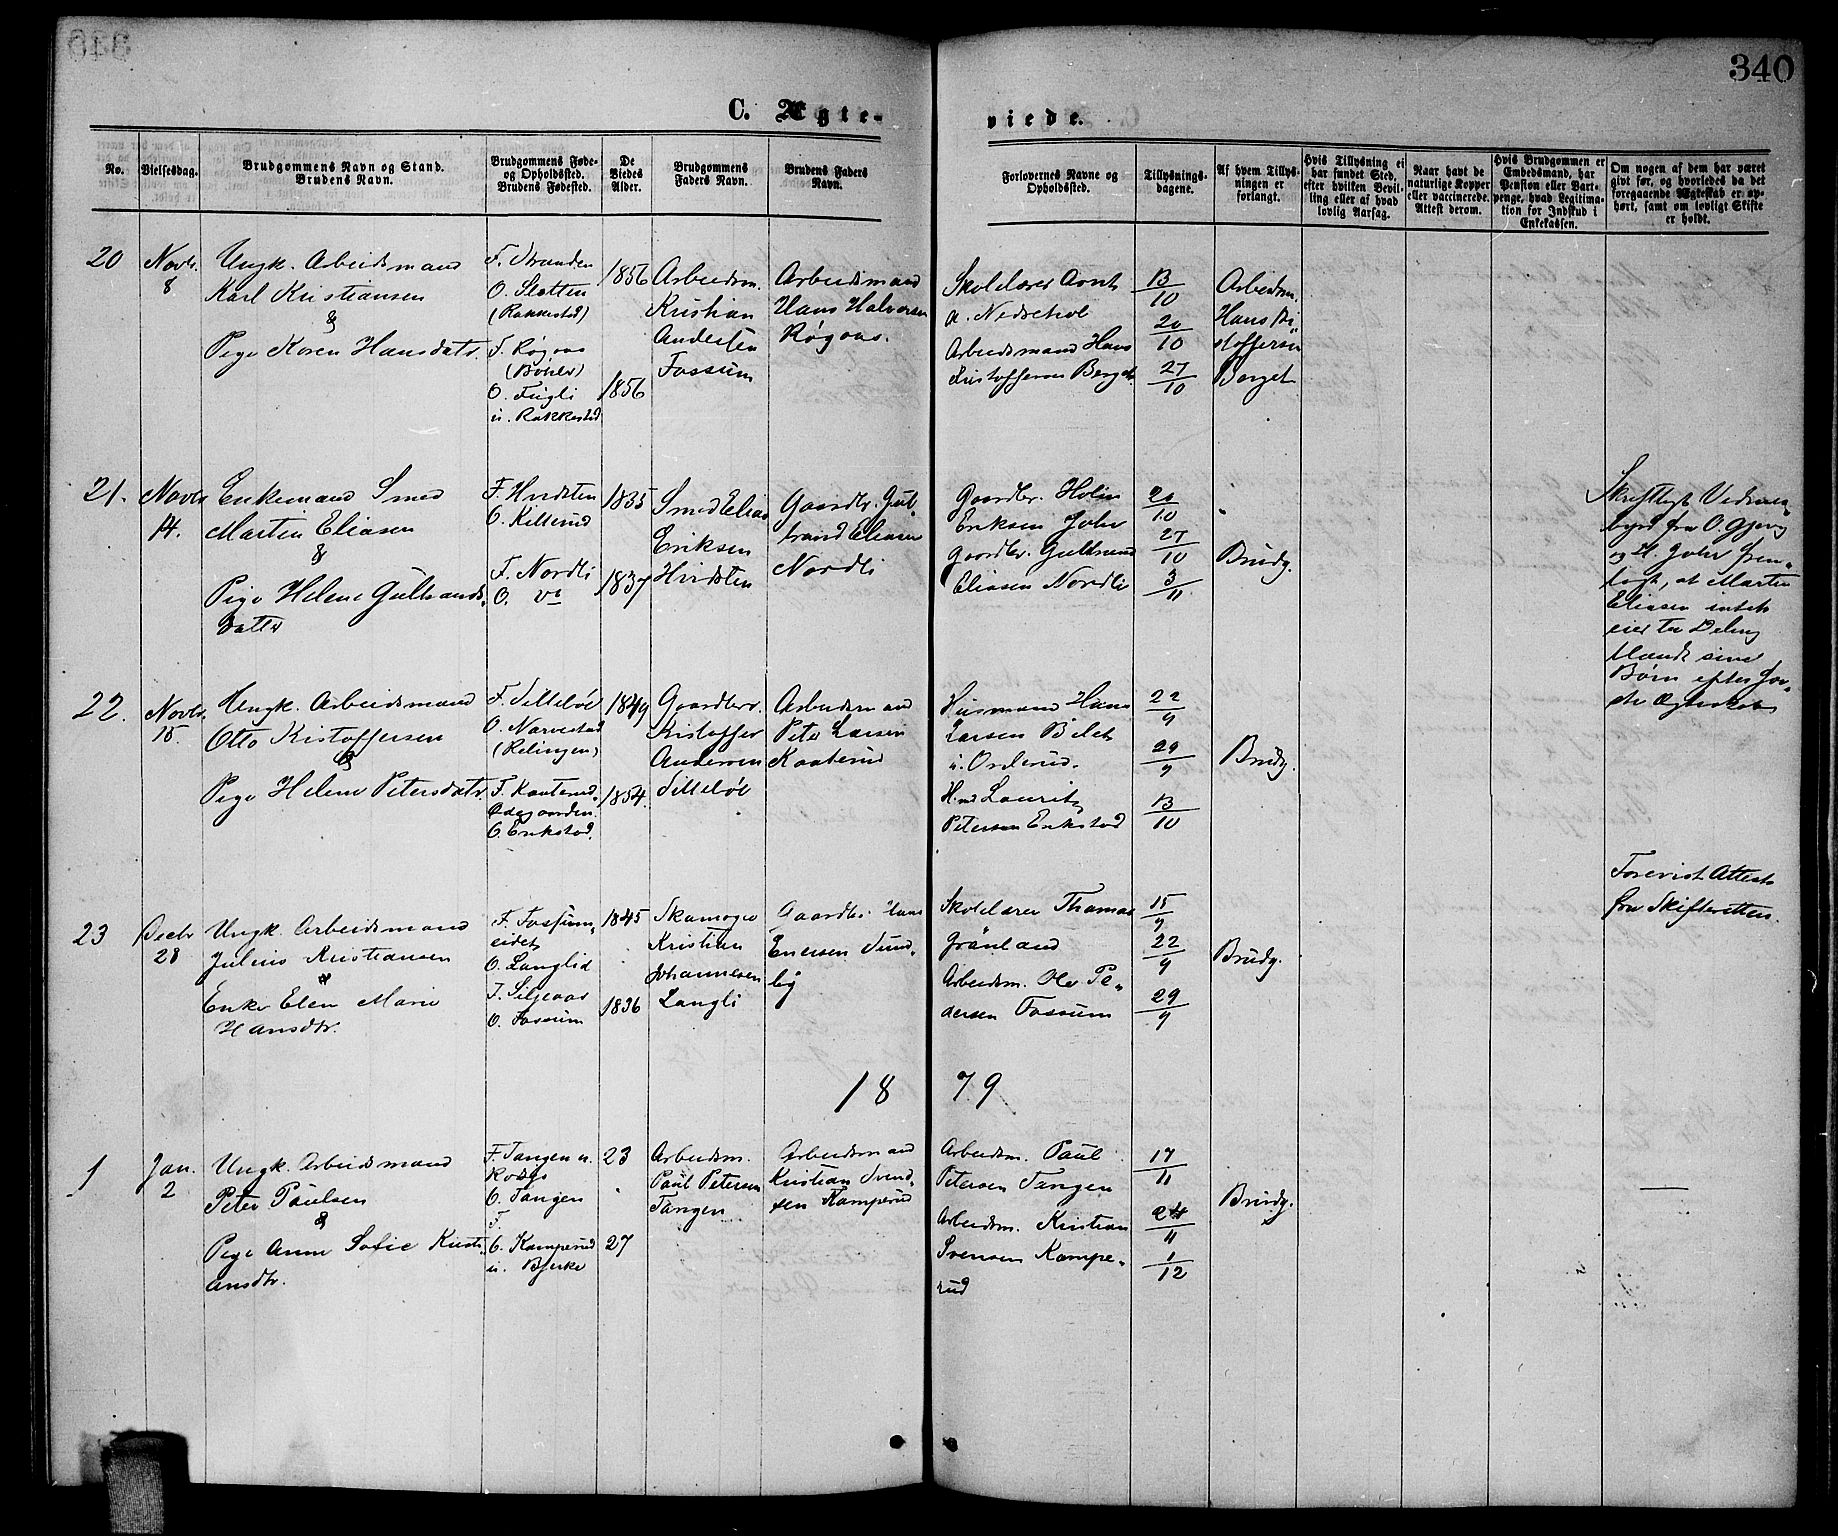 340
C. Ægte-
viede.
No.
Vielsesdag.
Brudgommens Navn og Stand.
Brudens Navn.
Brudgommens Føde-
og Opholdssted.
Brudens Fødested.
De
Viedes
Alder.
Brudgommens
Faders Navn.
Brudens Faders
Navn.
Forlovernes Navne og
Opholdssted.
Tillysnings-
dagene.
Af hvem Tillys-
ningen er
forlangt.
Hvis Tillysning ei
har fundet Sted,
efter hvilken Bevil-
ling eller af hvad
lovlig Aarsag.
Naar havt de
naturlige Kopper
eller vaccinerede.
Attest derom.
Hvis Brudgommen er
Embedsmand, har
Pension eller Vart-
penge, hvad Legitima-
tion for Indskud i
Enkekassen.
Om nogen af dem har været
givt før, og hvorledes da det
foregaaende Ægteskab er op-
hørt, samt om lovligt Skifte
er holdt.
20
Novbr.
8
Ungk. Arbeidsmand
Karl Kristiansen
&
Pige Karen Hansdatr.
F. Stranden
O. Sletten
(Rakkestad)
F. Røgaas
O. Fugli
u. Rakkestad
1856
1856
Arbeidsm.
Kristian
Andersen
Fossum
Arbeidsmand
Hans Halvorsen
Røgaas.
Skolelærer Arnt
A. Nedreheb
Arbeidsmand Hans
Kristoffersen Berget
13/10
20/10
27/10
Arbeidsm.
Hans Kri-
stoffersen
Berget
21.
Novbr
14.
Enkemand Smed
Martin Eliasen
&
Pige Helene Gulbrands-
datter
F. Hvidsten
O. Killerud
F. Nordli
O. do
1835
1837
Smed Elias
Eriksen
Hvidsten
Gaardbr. Gul-
brand Eliasen
Nordli
Gaardbr. Holm
Eriksen Joler
Gaardbr. Gulbrand
Eliasen Nordli
20/10
27/10
3/11
Brudg.
Skriftligt Vidnes-
byrd fra O. Gjerv
og H. Joler frem-
lagt, at Martin
Eliasen intet
eier til Deling
blandt sine
Børn efter før-
ste Ægteskab
22.
Novbr.
15.
Ungk. Arbeidsmand
Otto Kristoffersen
&
Pige Helene Petersdatr.
F. Silleböl
O. Narvestad
(Relingen)
F. Kaaterud
Ødegaarden.
O. Enkstad.
1849
1854.
Gaardbr.
Kristoffer
Andersen
Silleböl
Arbeidsmand
Peter Larsen
Kaaterud
Husmand Hans
Larsen Bilet
u. Orderud.
Hmd Lauritz
Petersen Enkstad
22/9
29/9
13/10
Brudg.
23
Decbr
28
Ungk. Arbeidsmand
Julius Kristiansen
&
Enke Elen Marie
Hansdtr.
F. Fossum-
eidet
O. Langlid
F. Siljeaas
O. Fossum
1845
1836
Skomager
Kristian
Johannesen
Langli
Gaardbr. Hans
Enersen Sund-
by
Skolelærer Thomas
Grønland
Arbeidsm. Ole Pe-
dersen Fossum
15/9
22/9
29/9
Brudg.
Forevist Attest
fra Skifteretten.
1879
1
Jan.
2
Ungk. Arbeidsmand
Peter Paulsen
&
Pige Anne Sofie Kristi-
ansdtr.
F. Tangen u.
O. Tangen
F.
O. Kamperud
u. Bjerke
23
27
Arbeidsm.
Paul Petersen
Tangen
Arbeidsmand
Kristian Svend-
sen Kamperud
Arbeidsm. Paul
Petersen Tangen
Arbeidsm. Kristian
Svensen Kampe-
rud
17/11
24/11
1/12
Brudg.